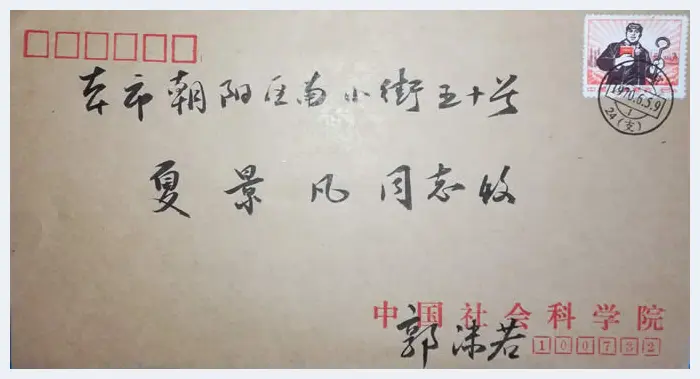 本市朝阳区南小街五十号
夏景凡同志收
1970.6.5.9
1
24(支)
中国社会科学院
郭沫若
100732